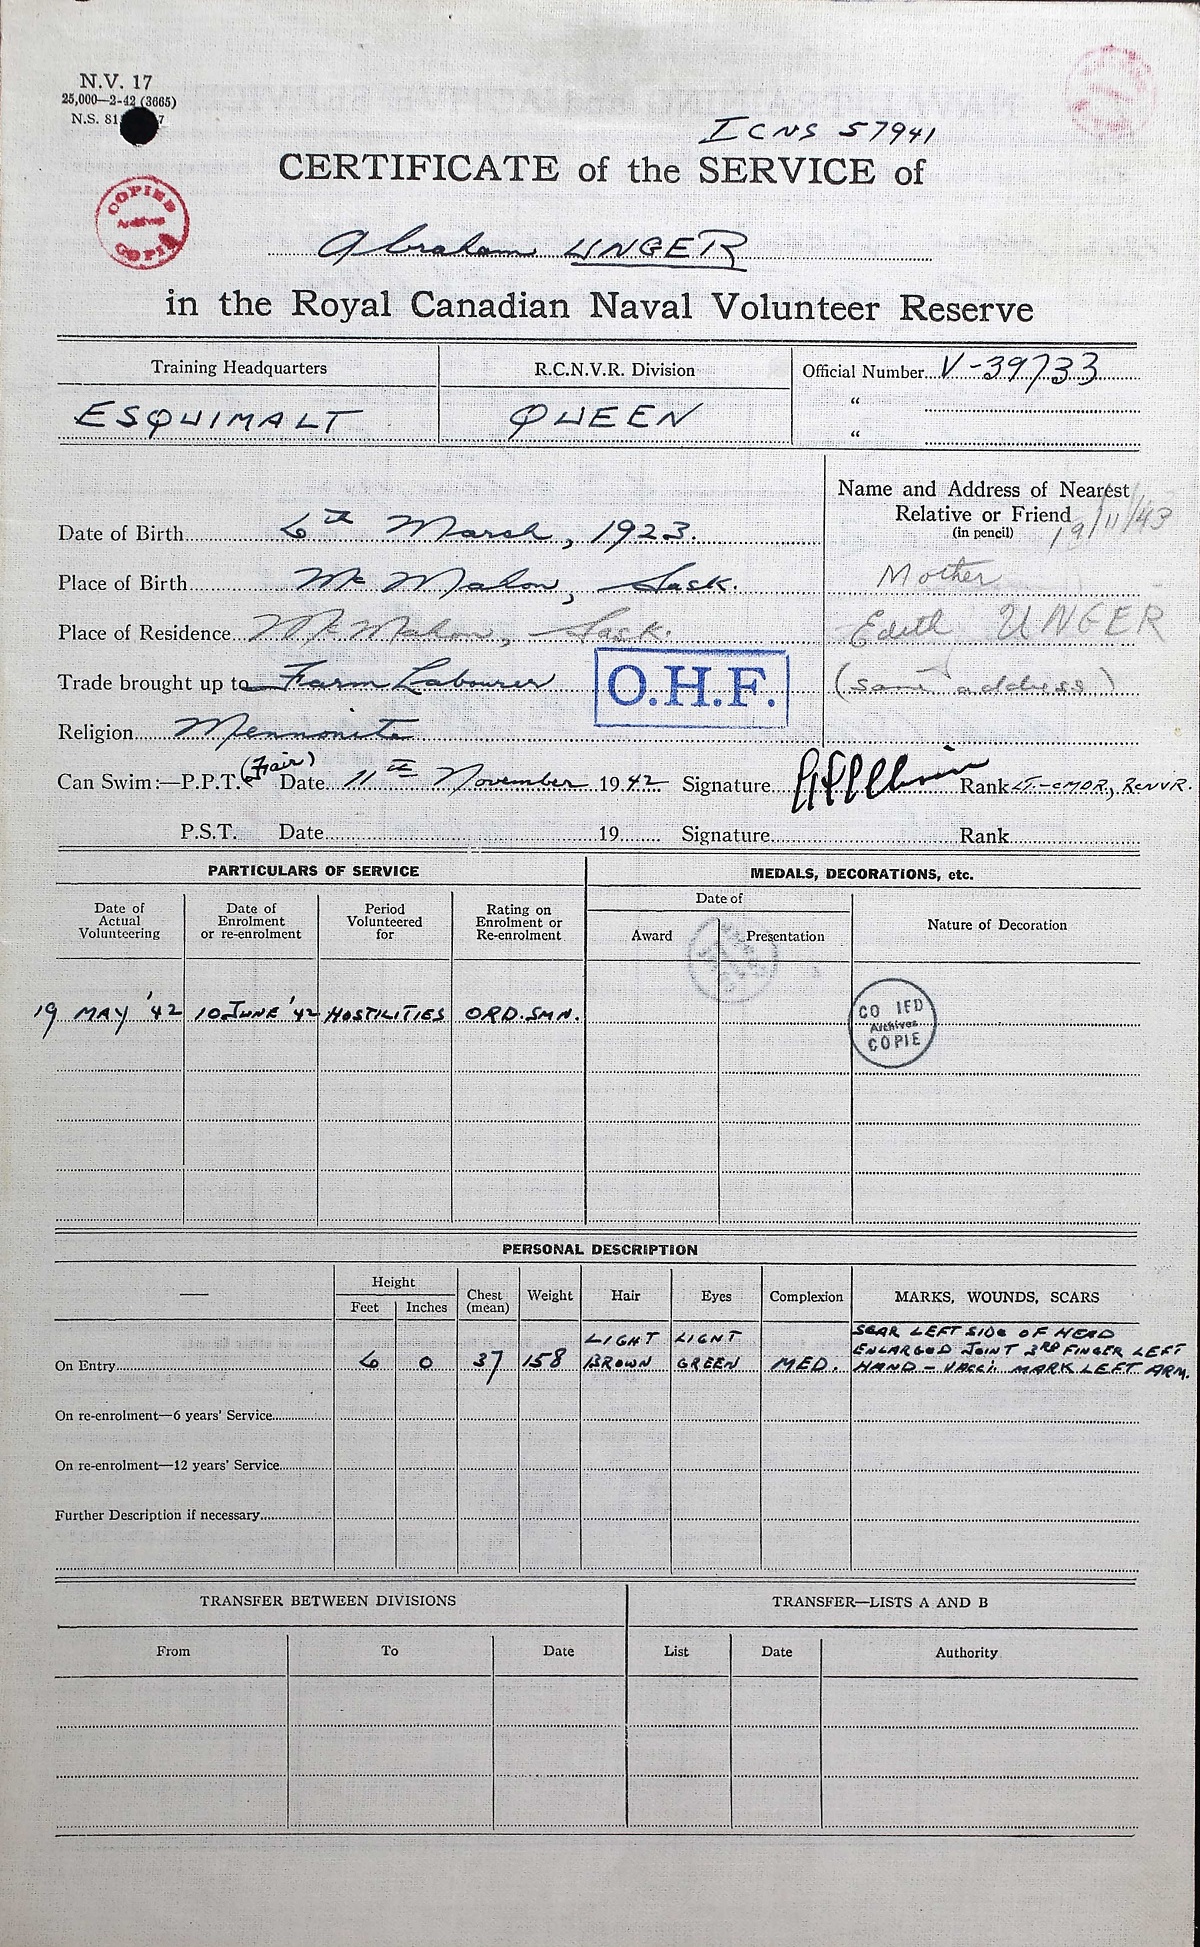 N.V. 17
25,000—2-42 (3665)
N.S. 81 7
ICNS 57941
CERTIFICATE of the SERVICE of
COPIED
Archives
COPIE
Abraham UNGER
in the Royal Canadian Naval Volunteer Reserve
Training Headquarters
R.C.N.V.R. Division
Official Number V-39733
ESQUIMALT
QUEEN
"
"
Name and Address of Nearest
Relative or Friend
(in pencil)
19/11/43
Date of Birth 6th March, 1923.
Place of Birth McMahon, Sask.
Mother
Place of Residence McMahon, Sask.
Edith UNGER
Trade brought up to Farm Labourer
O.H.F.
(same address)
Religion Mennonite
Can Swim:—P.P.T. (Fair) Date 11th November 1942 Signature Rank LT.-CMDR., RCNVR.
P.S.T. Date 19 Signature Rank
PARTICULARS OF SERVICE
MEDALS, DECORATIONS, etc.
Date of Actual Volunteering
Date of Enrolment or re-enrolment
Period Volunteered for
Rating on Enrolment or Re-enrolment
Date of
Award
Presentation
Nature of Decoration
19 MAY '42 10 JUNE '42 HOSTILITIES ORD. SMN.
CO IED
Archives
COPIE
PERSONAL DESCRIPTION
—
Height
Feet
Inches
Chest (mean)
Weight
Hair
Eyes
Complexion
MARKS, WOUNDS, SCARS
On Entry 6 0 37 158 LIGHT BROWN LIGHT GREEN MED. SCAR LEFT SIDE OF HEAD
ENLARGED JOINT 3RD FINGER LEFT
HAND – VACC. MARK LEFT ARM.
On re-enrolment—6 years' Service
On re-enrolment—12 years' Service
Further Description if necessary
TRANSFER BETWEEN DIVISIONS
TRANSFER—LISTS A AND B
From
To
Date
List
Date
Authority